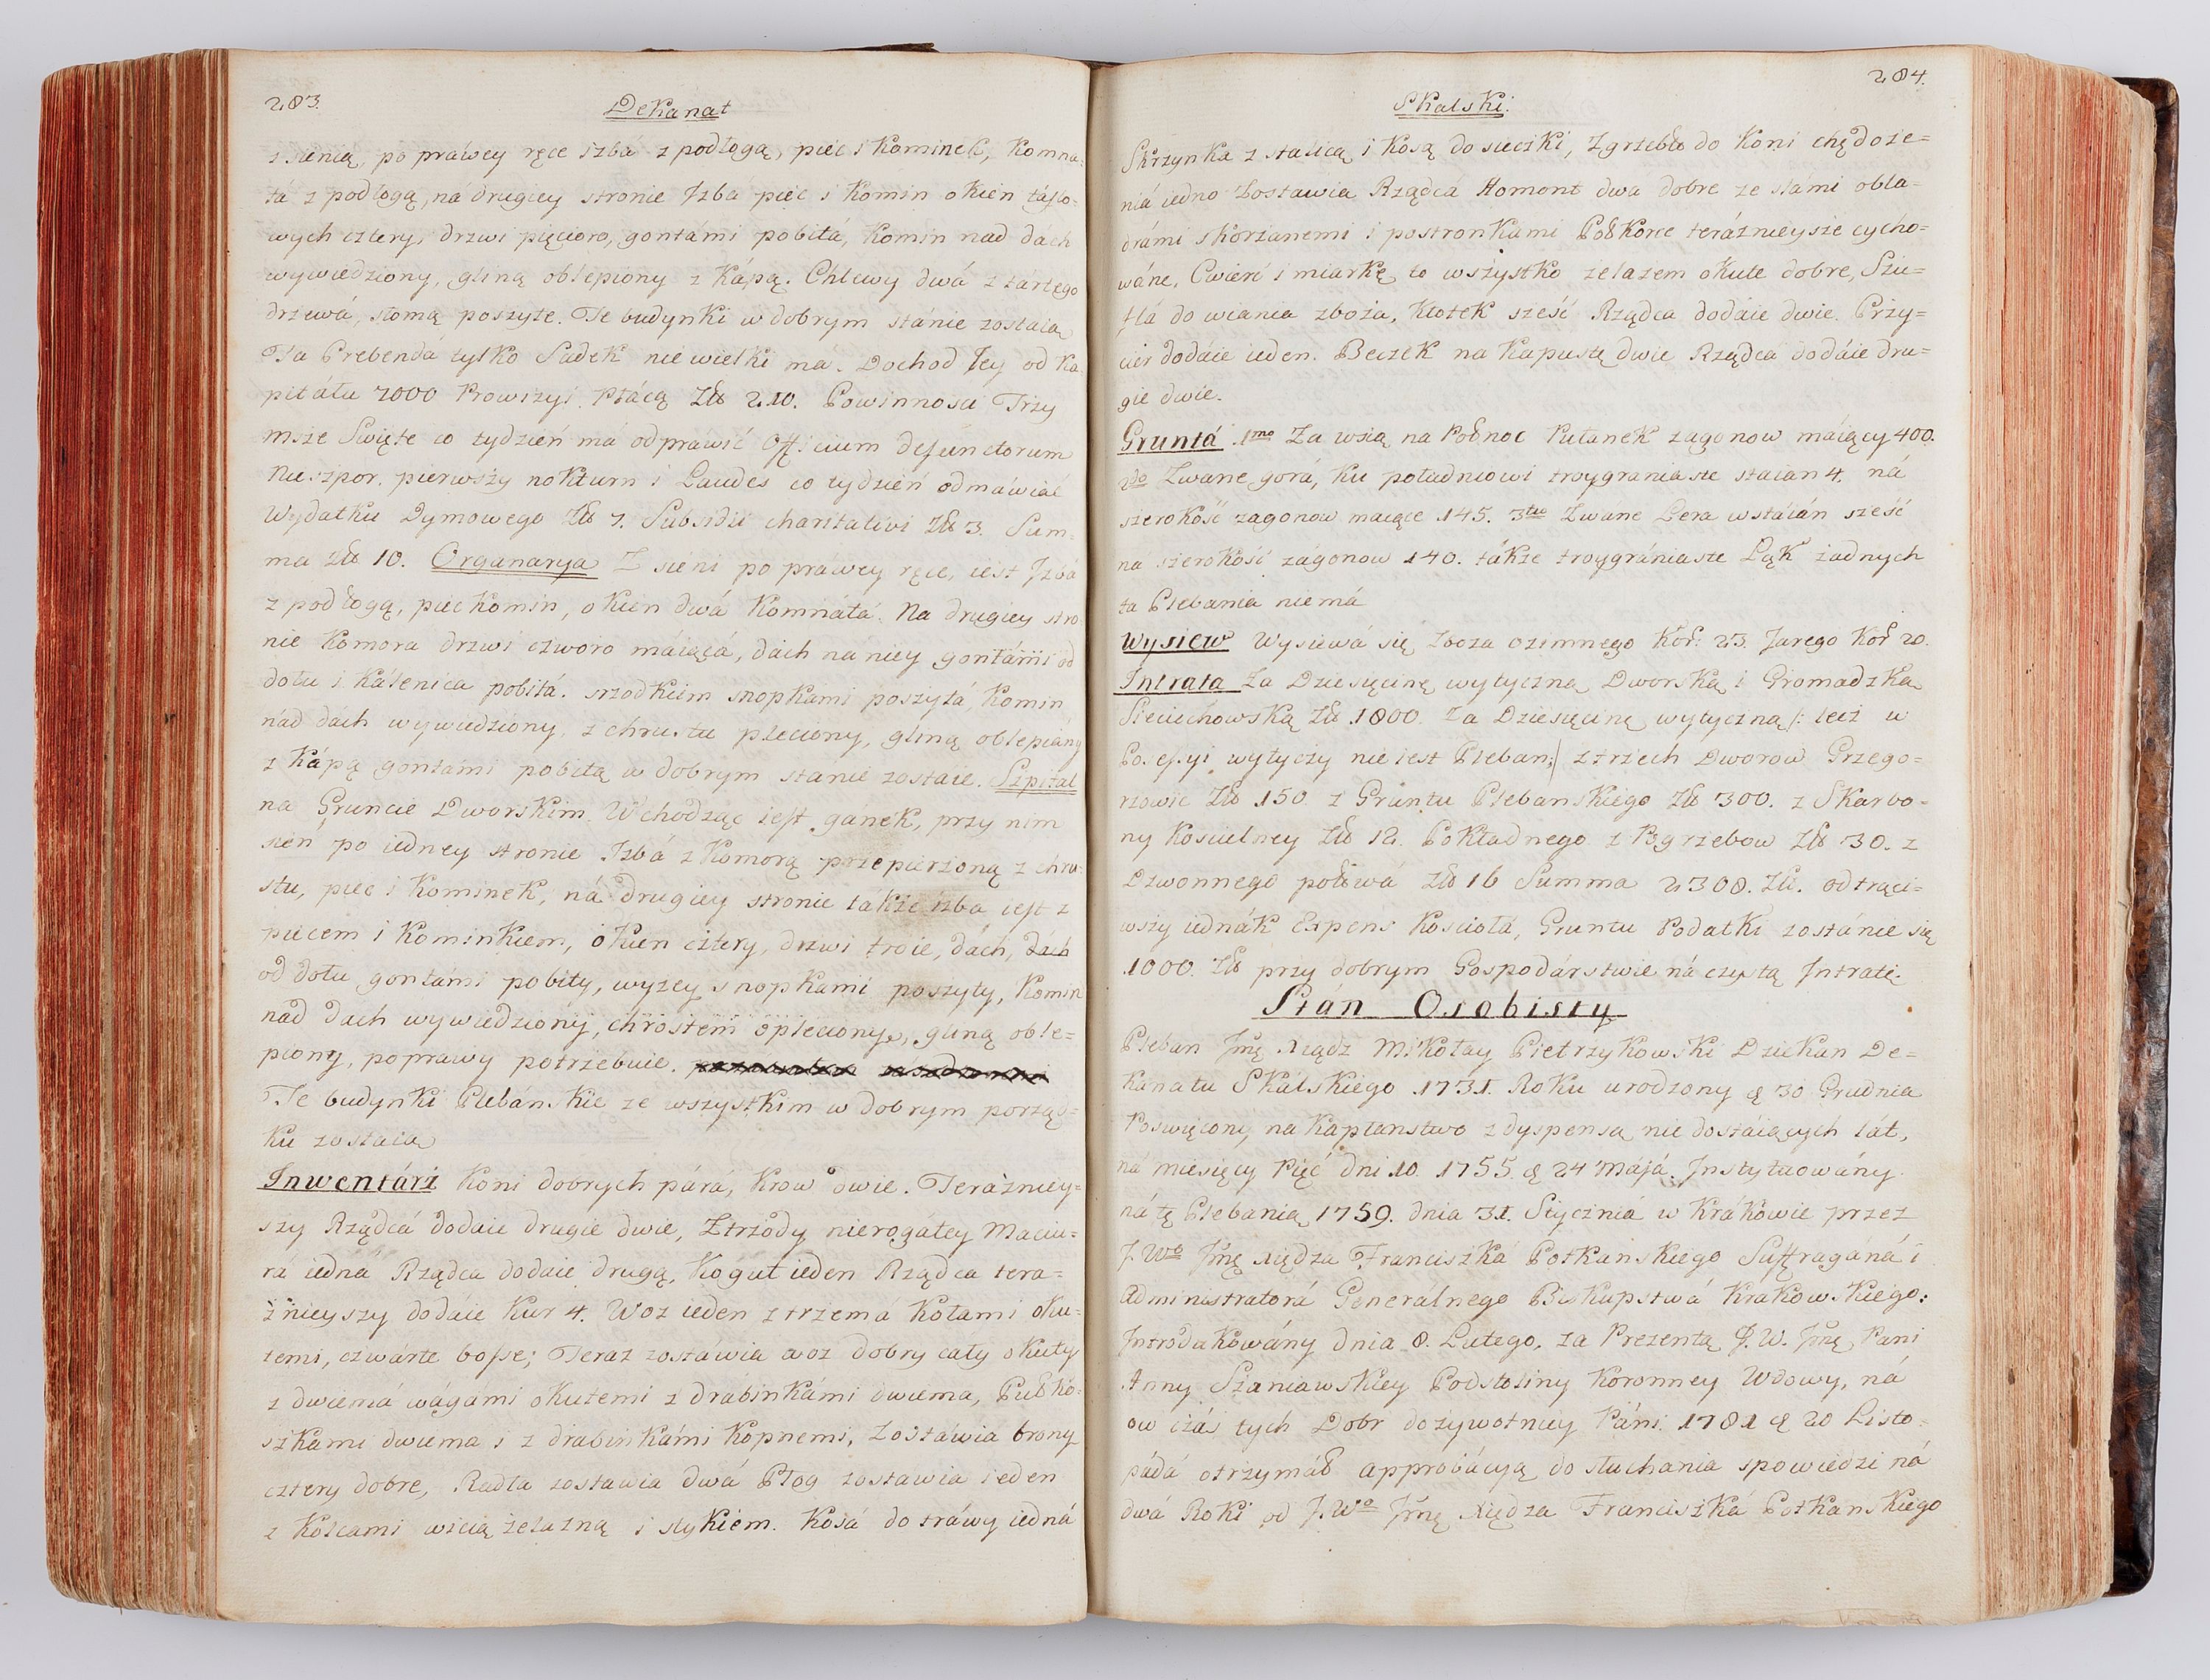 283.
Dekanat
z sienią, po prawey ręce izba z podłogą, piec i Kominek, Komna:
ta z podłogą, ná drugiey stronie Jzba piec i Komin okien táflo:
wych cztery, drzwi pięcioro, gontámi pobitá, Komin nad dách
wywiedziony, gliną oblepiony z Kápą. Chlewy dwá z tártego
drzewá, słomą poszyte. Te budynki w dobrym stánie zostaią
Ta Prebendá tylko Sadek niewielki ma. Dochod Jey od Ka
pitáłu 7000 Prowizyi Płácą Zło 210. Powinnosci Trzy
msze Święte co tydzień má odprawić Officium defunctorum
Nieszpor. pierwszy nokturn i Laudes co tydzień odmáwiáć
Wydatku Dymowego Zło 7. Subsidii charitativi Zło 3. Sum=
ma Zło 10. Organarya Z sieni po prawey ręce, iest Jzbá
z podłogą, piec Komin, okien dwá Komnátá. Na drugiey stro
nie Komora drzwi czworo máiącá, dach na niey gontámi od
dołu i Kálenica pobitá. srzodkiem snopkami poszytá, Komin
nád dách wywiedziony, z chrustu pleciony, gliną oblepiány
z Kápą gontami pobitą w dobrym stanie zostaie. Szpital
na Gruncie Dworskim. Wchodząc iest gánek, przy nim
sień po iedney stronie Jzbá z Komorą przepierzoną z chru:
stu, piec i Kominek, ná drugiey stronie tákże izba iest z
piecem i Kominkiem, okien cztery, drzwi troie, dách, dách
od dołu gontámi pobity, wyzey snopkami poszyty, Komin
nád dach wywiedziony, chrostem opleciony, gliną oble=
piony, poprawy potrzebuie.
Te budynki Plebánskie ze wszystkim w dobrym porząd=
ku zostaią
Inwentárz Koni dobrych párá, Krow dwie. Teráżniey=
szy Rządcá dodaie drugie dwie, Z trzody nierogátey Maciu=
rá iedná Rządca dodaie drugą, Kogut ieden Rządca tera=
żnieyszy dodáie Kur 4. Woz ieden z trzema Kołami oku=
temi, czwárte bosse; Teraz zostáwia woz dobry cáły okuty
z dwiemá wągami okutemi z drabinkámi dwiema, Pułko:
szkami dwiema i z drabinkámi Kopnemi, Zostáwia brony
cztery dobre, Radla zostawia dwá Pług zostawia ieden
z Kołcami wicią żelazną i stykiem. Kosá do tráwy iedná
284.
Skalski.
Skrzynka z stalicą i Kosą do sieczki, Zgrzebło do Koni chędoże=
niá iedno Zostawia Rządcá Homont dwa dobre ze slámi obla=
drámi skorzanemi i postronkami Połkorce teráżnieysze cycho=
wáne, Cwierć i miarkę to wszystko zelazem okute dobre, Szu=
flá do wiania zboża, Kłotek sześć Rządca dodáie dwie. Przy=
cier dodáie ieden. Beczek na Kapustę dwie Rządca dodáie dru=
gie dwie.
Gruntá 1mo Za wsią na Połnoc Pułanek zagonow máiący 400.
2do Zwane gorá, Ku południowi troygraniaste staian 4. ná
szerokość zagonow maiące 145. 3tio Zwane Lera wstáián sześć
na szerokość zágonow 140. tákże troygrániaste Łąk żadnych
ta Plebania niemá
Wysiew Wysiewá się Zboza ozimnego Kor: 23. Jarego Kor 20.
Intrata Za Dziesięcinę wytyczną Dworską i Gromadzką
Sieciechowską Zło 1800. Za Dziesięcinę wytyczną /: lecz w
Possessyi wytyczy nie iest Pleban :/ z trzech Dworow Grzego=
rzowic Zło 150. z Gruntu Plebanskiego Zło 300. z Skarbo=
ny Kościelney Zło 12. Pokładnego z Pogrzebow Zło 30. z
Dzwonnego połowá Zło 16 Summa 2308. Zło. odtrąci=
wszy iednák Expens Kościołá, Gruntu Podatki zostánie się
1000. Zło przy dobrym Gospodárstwie ná czystą Jntratę.
Stán Osobisty
Pleban Jmę Xiądz Mikołay Pietrzykowski Dziekan De=
kanatu Skálskiego 1731. Roku urodzony d 30 Grudnia
Poswięcony na Kapłanstwo z dyspensą nie dostáiących lát,
ná miesięcy Pięć dni 10 1755 d 24 Májá. Jnstytuowány
ná tę Plebanią 1759. dnia 31. Stycznia w Krákowie przez
J. Wo Jmę Xiędza Franciszká Potkanskiego Suffragáná i
Administratorá Generálnego Biskupstwá Krakowskiego:
Jntrodukowány dnia 8. Lutego. za Prezentą J. W. Jmę Pani
Anny Szaniawskiey Podstoliny Koronney Wdowy, ná
ow czás tych Dobr dożywotniey Páni. 1781 d 20 Listo=
pádá otrzymáł approbácyą do słuchania spowiedzi ná
dwá Roki od J. Wo Jmę Xiędza Franciszká Potkanskiego